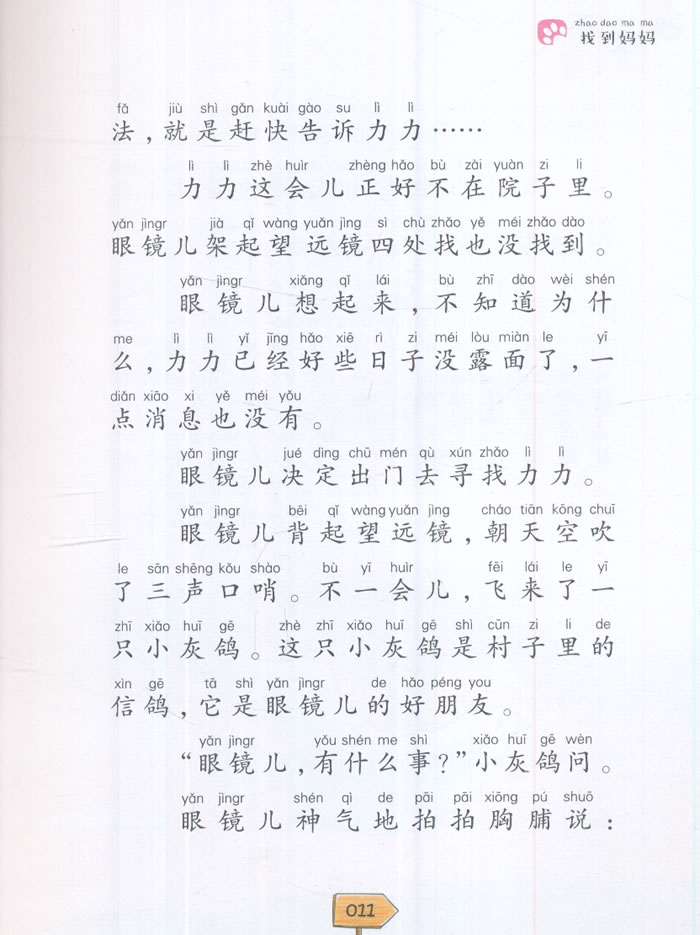 zhao dao ma ma
找到妈妈
fǎ jiù shì gǎn kuài gào su lì lì
法，就是赶快告诉力力……
lì lì zhè huìr zhèng hǎo bù zài yuàn zi li
力力这会儿正好不在院子里。
yǎn jìngr jià qǐ wàng yuǎn jìng sì chù zhǎo yě méi zhǎo dào
眼镜儿架起望远镜四处找也没找到。
yǎn jìngr xiǎng qǐ lái bù zhī dào wèi shén
眼镜儿想起来，不知道为什
me lì lì yǐ jīng hǎo xiē rì zi méi lòu miàn le yī
么，力力已经好些日子没露面了，一
diǎn xiāo xi yě méi yǒu
点消息也没有。
yǎn jìngr jué dìng chū mén qù xún zhǎo lì lì
眼镜儿决定出门去寻找力力。
yǎn jìngr bēi qǐ wàng yuǎn jìng cháo tiān kōng chuī
眼镜儿背起望远镜，朝天空吹
le sān shēng kǒu shào bù yī huìr fēi lái le yī
了三声口哨。不一会儿，飞来了一
zhī xiǎo huī gē zhè zhī xiǎo huī gē shì cūn zi li de
只小灰鸽。这只小灰鸽是村子里的
xìn gē tā shì yǎn jìngr de hǎo péng you
信鸽，它是眼镜儿的好朋友。
yǎn jìngr yǒu shén me shì xiǎo huī gē wèn
“眼镜儿，有什么事？”小灰鸽问。
yǎn jìngr shén qì de pāi pāi xiōng pú shuō
眼镜儿神气地拍拍胸脯说：
011